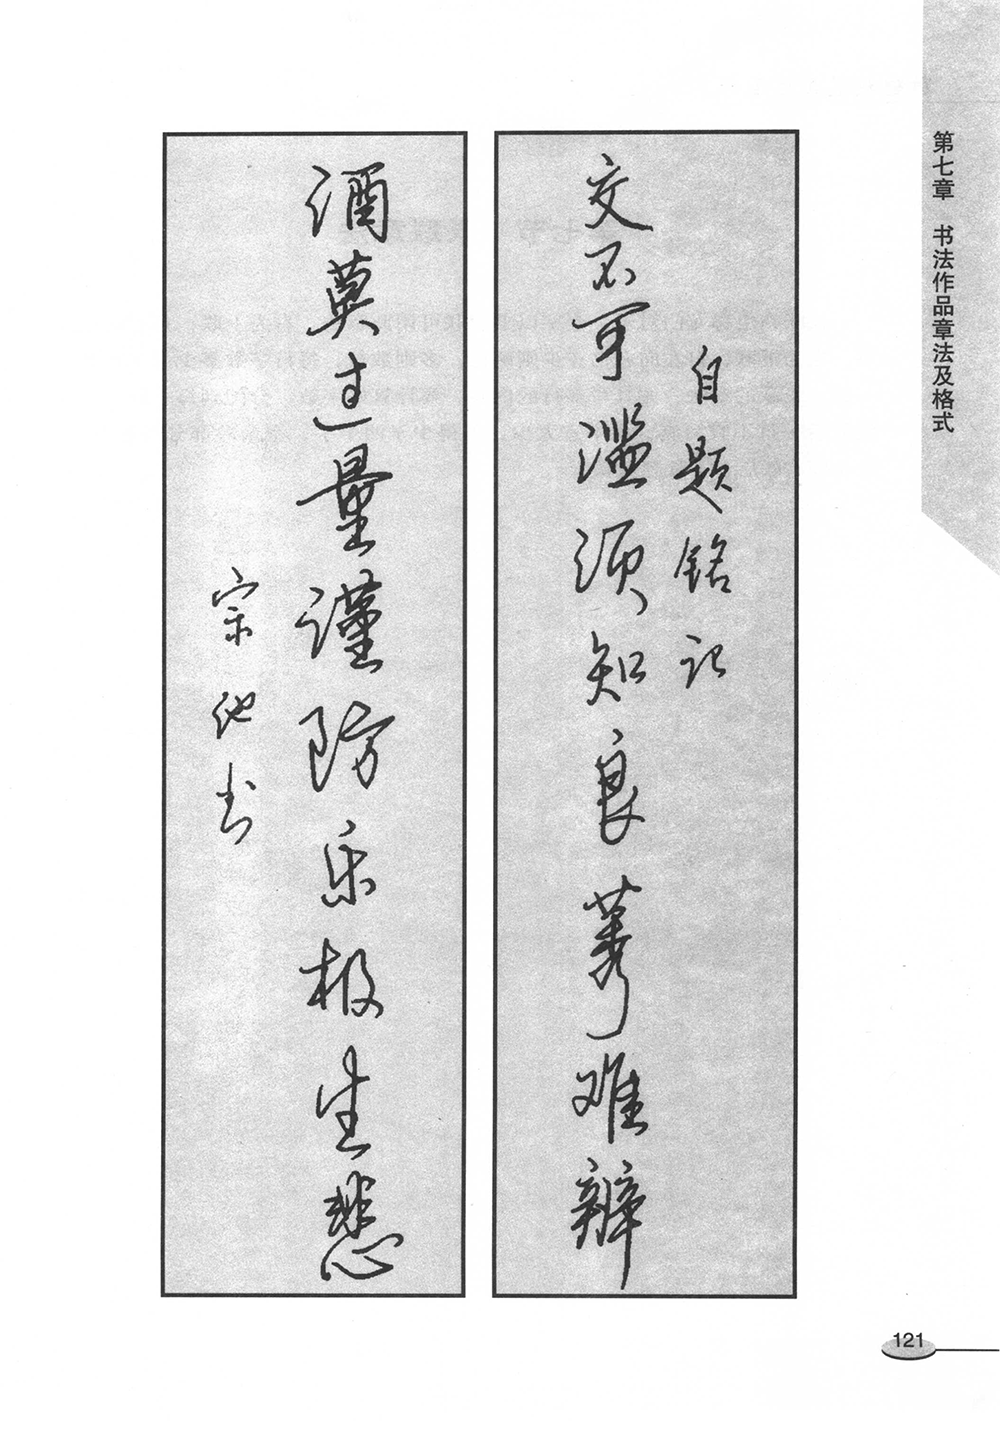 第七章 书法作品章法及格式
自题铭记
交不可滥须知良莠难辨
酒莫过量谨防乐极生悲
宗 书
121